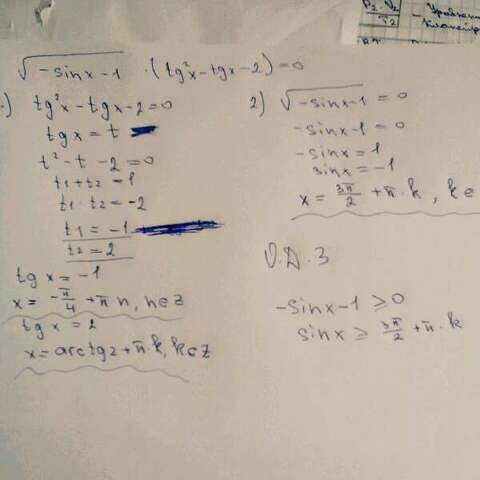 P₂·V₂
T₂
– Уравнение
√(-sinx-1) · (tg²x-tgx-2)=0
1) tg²x-tgx-2=0
tgx=t
t²-t-2=0
t₁+t₂=1
t₁·t₂=-2
t₁=-1
t₂=2
tg x = -1
x = -π/4 + πn, n∈z
tg x = 2
x=arctg2+π·k, k∈z
2) √(-sinx-1) = 0
-sinx-1=0
-sinx=1
sinx=-1
x = 3π/2 + π·k, k∈
О.Д.З
-sinx-1⩾0
sinx ⩾ 3π/2 + π·k